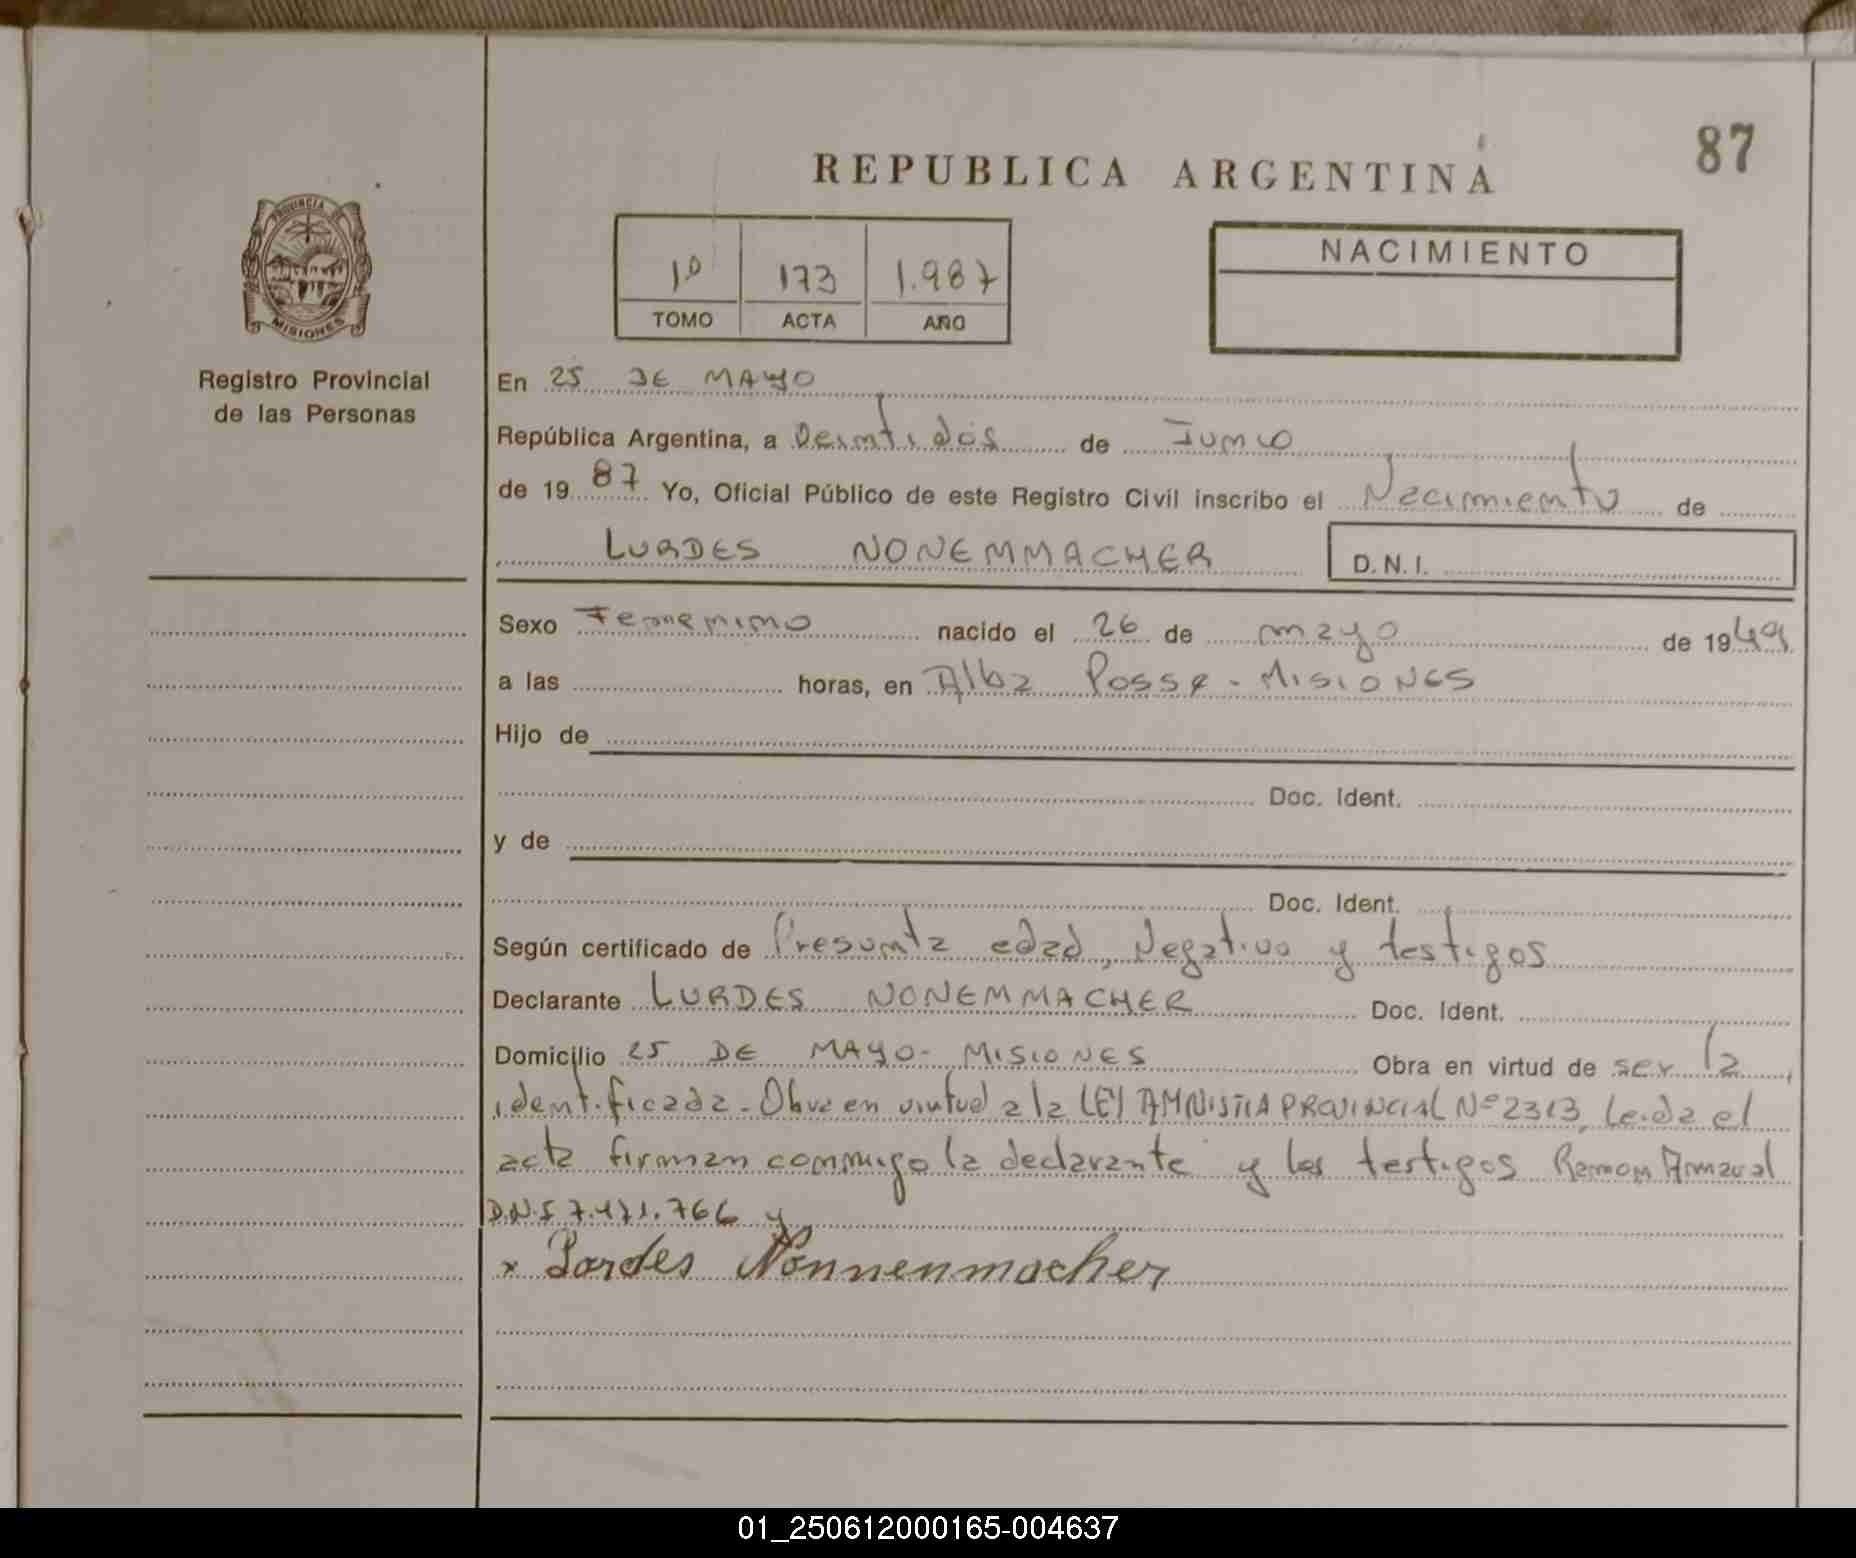 87
REPUBLICA ARGENTINA
PROVINCIA DE
MISIONES
Registro Provincial
de las Personas
1º 173 1.987
TOMO ACTA AÑO
NACIMIENTO
En 25 DE MAYO
República Argentina, a Veintidós de Junio
de 19 87 Yo, Oficial Público de este Registro Civil inscribo el Nacimiento de
LURDES NONEMMACHER D.N.I.
Sexo Femenino nacido el 26 de mayo de 1949
a las horas, en Alba Posse - MISIONES
Hijo de
Doc. Ident.
y de
Doc. Ident.
Según certificado de Presunta edad, Negativo y testigos
Declarante LURDES NONEMMACHER Doc. Ident.
Domicilio 25 DE MAYO - MISIONES Obra en virtud de ser la
identificada - Obra en virtud a la LEY AMNISTIA PROVINCIAL Nº 2313, Leida el
acta firman conmigo la declarante y los testigos Ramon Amaral
D.N.I 7.471.766 y
x Lordes Nonnenmacher
01_250612000165-004637